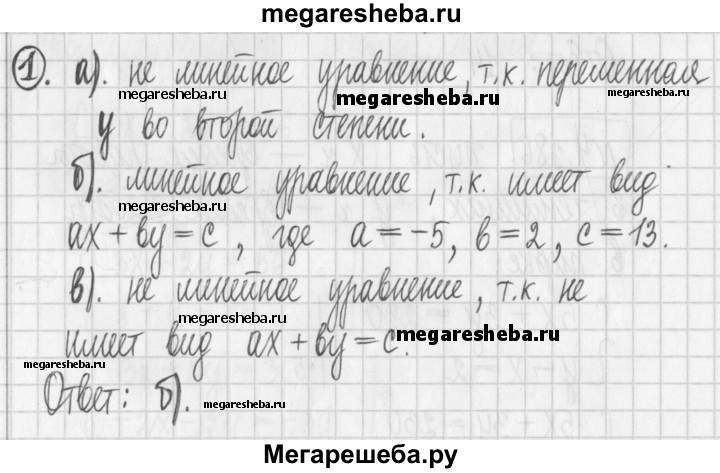 megaresheba.ru
1. а). не линейное уравнение, т.к. переменная
megaresheba.ru megaresheba.ru megaresheba.ru
у во второй степени.
б). линейное уравнение, т.к. имеет вид
megaresheba.ru megaresheba.ru
ax + by = c, где a = -5, b = 2, c = 13.
в). не линейное уравнение, т.к. не
megaresheba.ru
имеет вид ax + by = c.
megaresheba.ru
megaresheba.ru
Ответ: б).
megaresheba.ru
Мегарешеба.ру